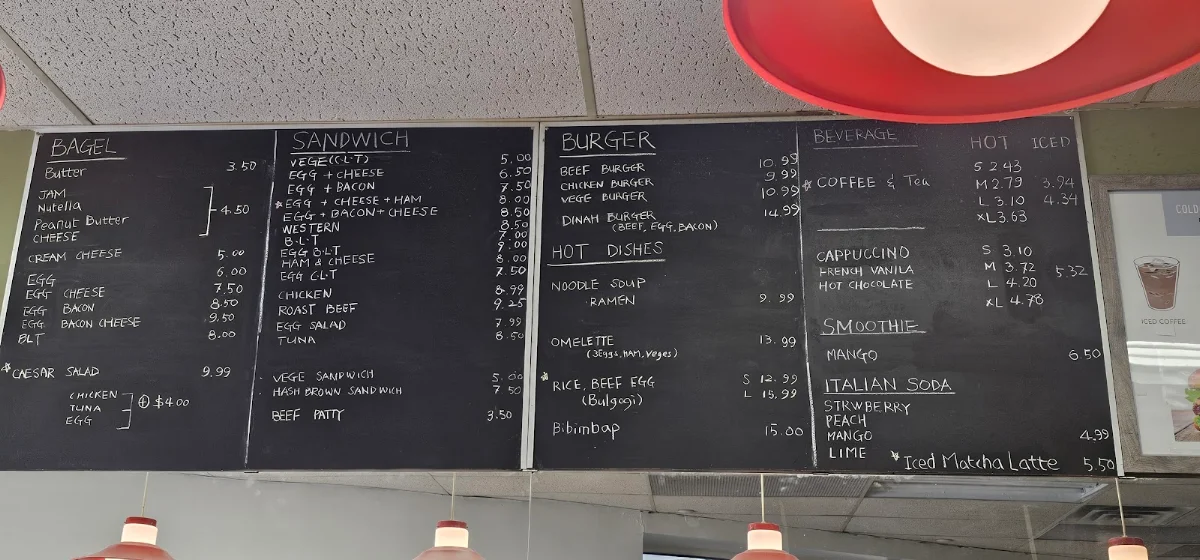 BAGEL
Butter 3.50
JAM
Nutella
Peanut Butter 4.50
CHEESE
CREAM CHEESE 5.00
EGG 6.00
EGG CHEESE 7.50
EGG BACON 8.50
EGG BACON CHEESE 9.50
BLT 8.00
*CAESAR SALAD 9.99
CHICKEN
TUNA + $4.00
EGG
SANDWICH
VEGE(C·L·T) 5.00
EGG + CHEESE 6.50
EGG + BACON 7.50
*EGG + CHEESE + HAM 8.00
EGG + BACON + CHEESE 8.50
WESTERN 8.50
B·L·T 7.00
EGG B·L·T 9.00
HAM & CHEESE 8.00
EGG C·L·T 7.50
CHICKEN 8.99
ROAST BEEF 9.25
EGG SALAD 7.99
TUNA 8.50
VEGE SANDWICH 5.00
HASH BROWN SANDWICH 7.50
BEEF PATTY 3.50
BURGER
BEEF BURGER 10.99
CHICKEN BURGER 9.99
VEGE BURGER 10.99
DINAH BURGER 14.99
(BEEF, EGG, BACON)
HOT DISHES
NOODLE SOUP
·RAMEN 9.99
OMELETTE 13.99
(3Eggs, HAM, Veges)
*RICE, BEEF EGG S 12.99
(Bulgogi) L 15.99
Bibimbap 15.00
BEVERAGE HOT ICED
S 2.43
*COFFEE & Tea M 2.79 3.94
L 3.10 4.34
XL 3.63
CAPPUCCINO S 3.10
FRENCH VANILA M 3.72 5.32
HOT CHOCOLATE L 4.20
XL 4.78
SMOOTHIE
MANGO 6.50
ITALIAN SODA
STRWBERRY
PEACH
MANGO 4.99
LIME
*Iced Matcha Latte 5.50
COLD
ICED COFFEE